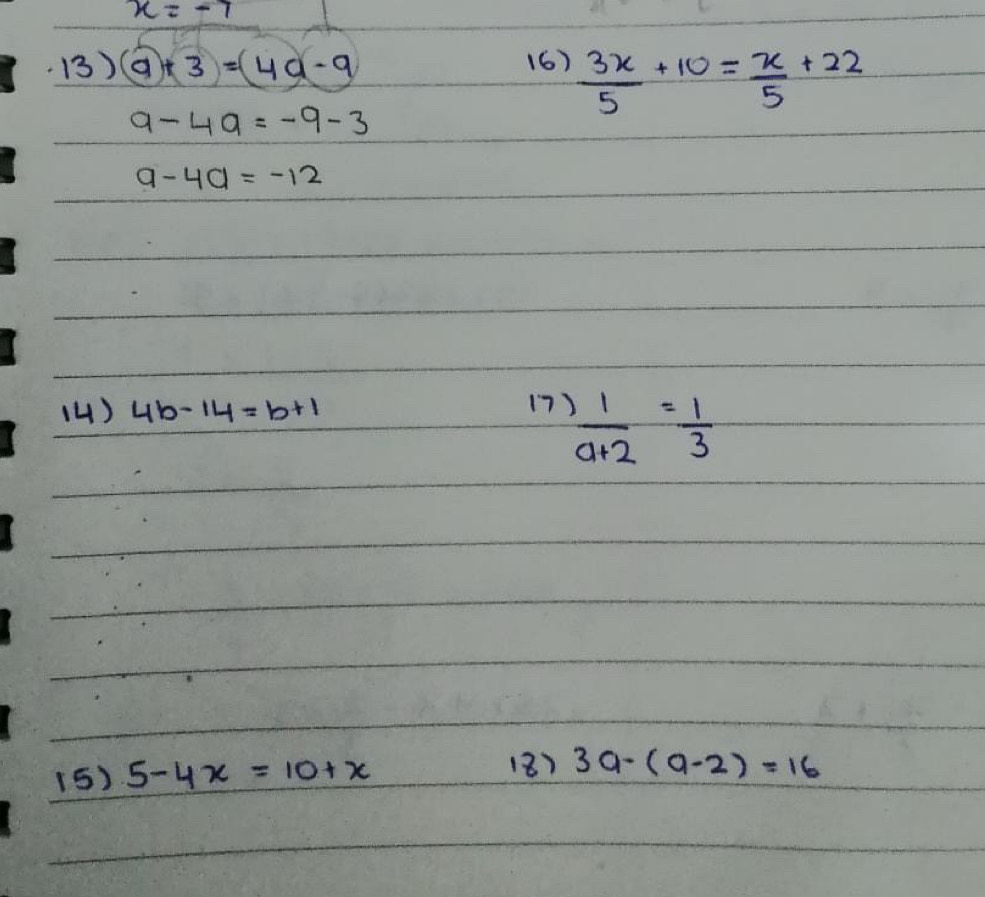 x = -7
13) a + 3 = 4a - 9
a - 4a = -9 - 3
a - 4a = -12
14) 4b - 14 = b + 1
15) 5 - 4x = 10 + x
16) 3x/5 + 10 = x/5 + 22
17) 1/(a+2) = 1/3
18) 3a - (a - 2) = 16